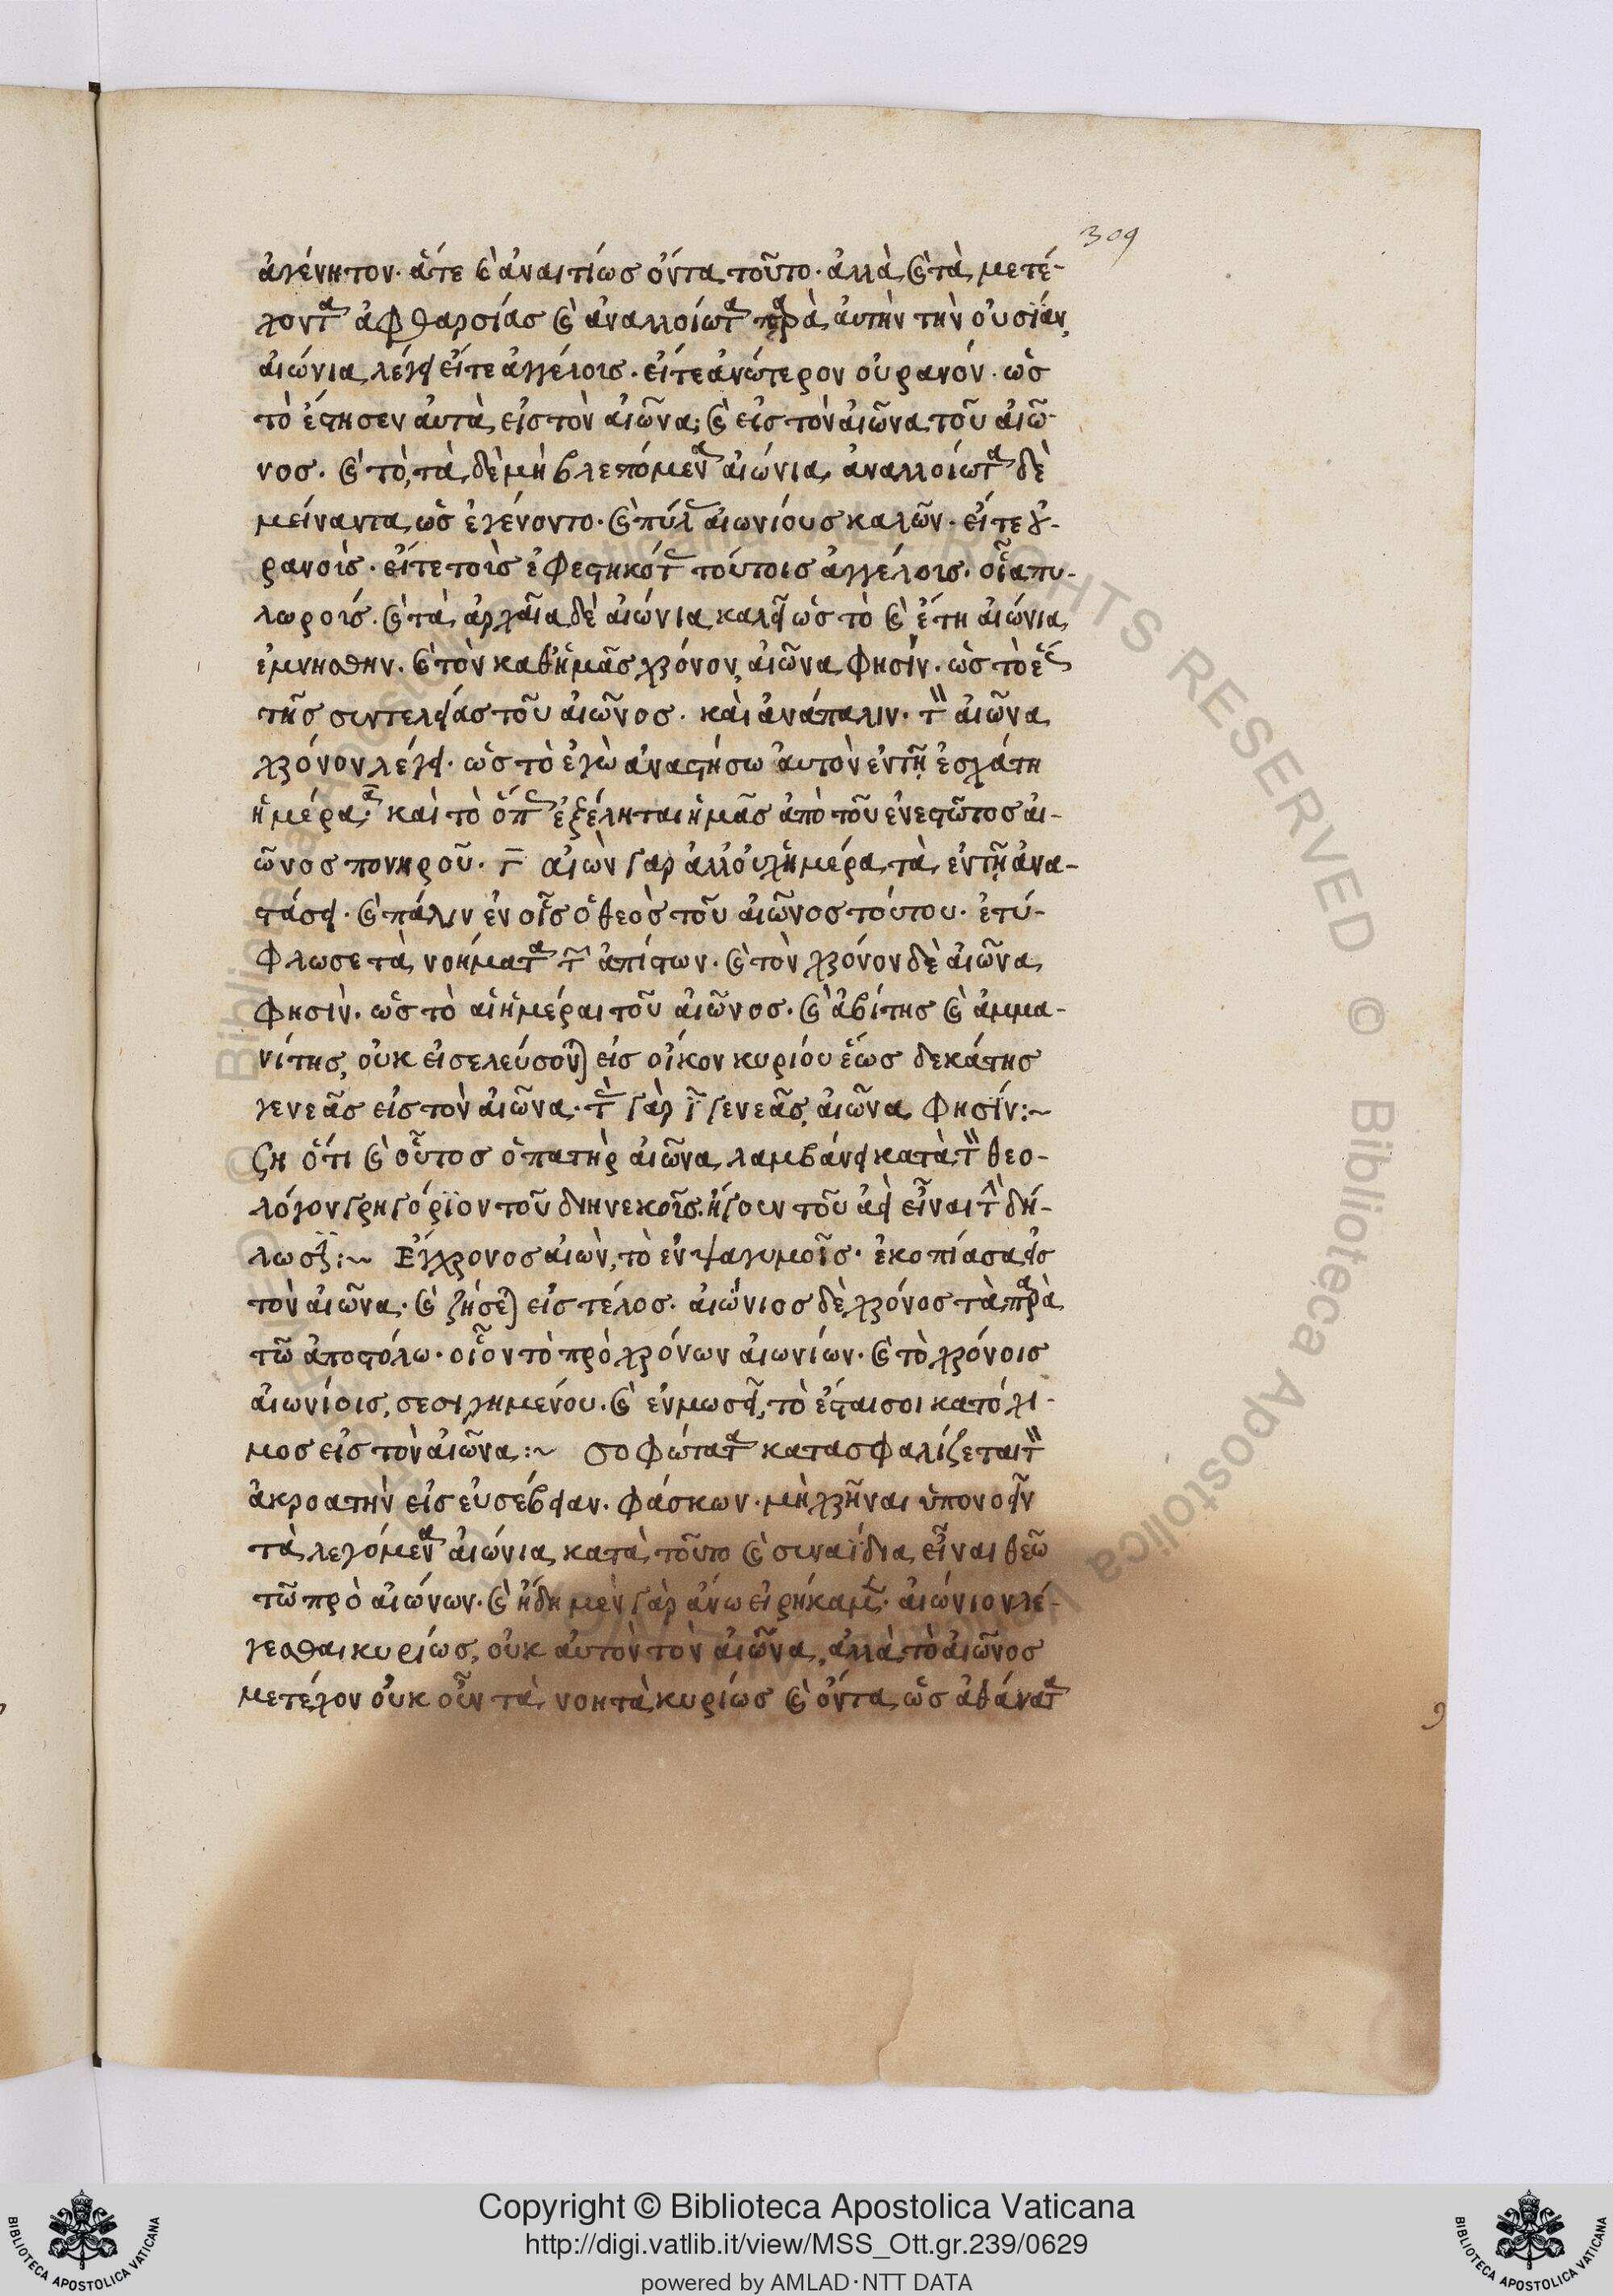 309
ἀγένητον· ἅτε καὶ ἀναιτίωσ ὄντα τοῦτο· ἀλλὰ καὶ τὰ μετέ-
χοντα ἀφθαρσίασ καὶ ἀναλλοίωτα παρὰ αὐτὴν τὴν οὐσίαν,
αἰώνια λέγει εἴτε ἀγγέλοισ· εἴτε ἀνώτερον οὐρανόν· ὡσ
τὸ ἔστησεν αὐτὰ εἰσ τὸν αἰῶνα; καὶ εἰσ τὸν αἰῶνα τοῦ αἰῶ-
νοσ· καὶ τὸ, τὰ δὲ μὴ βλεπόμενα αἰώνια ἀναλλοίωτα δὲ
μείναντα ὡσ ἐγένοντο· καὶ πύλασ αἰωνίουσ καλῶν· εἴτε οὐ-
ρανοῖσ· εἴτε τοῖσ ἐφεστηκόσι τούτοισ ἀγγέλοισ· οἷα πυ-
λωροῖσ· καὶ τὰ ἀρχαῖα δὲ αἰώνια καλεῖ ὡσ τὸ καὶ ἔτη αἰώνια
ἐμνήσθην· καὶ τὸν καθ' ἡμᾶσ χρόνον, αἰῶνα φησίν· ὡσ τὸ ἕωσ
τῆσ συντελείασ τοῦ αἰῶνοσ· καὶ ἀνάπαλιν· τὸν αἰῶνα
χρόνον λέγει· ὡσ τὸ ἐγὼ ἀναστήσω αὐτὸν ἐν τῇ ἐσχάτη
ἡμέρα· καὶ τὸ ὅπωσ ἐξέληται ἡμᾶσ ἀπὸ τοῦ ἐνεστῶτοσ αἰ-
ῶνοσ πονηροῦ· αἰὼν γαρ ἀλλ' οὐχ ἡμέρα τὰ ἐν τῇ ἀνα-
στάσει· καὶ πάλιν ἐν οἷσ ὁ θεὸσ τοῦ αἰῶνοσ τούτου· ἐτύ-
φλωσε τὰ νοήματα τῶν ἀπίστων· καὶ τὸν χρόνον δὲ αἰῶνα
φησὶν· ὡσ τὸ αἱ ἡμέραι τοῦ αἰῶνοσ· καὶ ἀβίτησ καὶ ἀμμα-
νίτησ, οὐκ εἰσελεύσονται εἰσ οἶκον κυρίου ἕωσ δεκάτησ
γενεᾶσ εἰσ τὸν αἰῶνα· τὰσ γὰρ ι γενεᾶσ, αἰῶνα φησίν:~
ση ὅτι καὶ οὗτοσ ὁ πατὴρ αἰῶνα λαμβάνει κατὰ τὸν θεο-
λόγον γρηγόριον τοῦ διηνεκοῖσ· ἤγουν τοῦ ἀεὶ εἶναι τὴν δή-
λωσιν:~ Ἔγχρονοσ αἰὼν, τὸ ἐν ψαλμοῖσ· ἐκοπίασα εἰσ
τὸν αἰῶνα· καὶ ζήσεται εἰσ τέλοσ· αἰώνιοσ δὲ χρόνοσ τὰ παρὰ
τῶ ἀποστόλω· οἷον τὸ πρὸ χρόνων αἰωνίων· καὶ τὸ χρόνοισ
αἰωνίοισ, σεσιγημένου· καὶ ἐν μωσεῖ, τὸ ἔσται σοι κατόχι-
μοσ εἰσ τὸν αἰῶνα:~ σοφώτατα κατασφαλίζεται τὸν
ἀκροατὴν εἰσ εὐσέβειαν· φάσκων· μὴ χρῆναι ὑπονοεῖν
τὰ λεγόμενα αἰώνια κατὰ τοῦτο καὶ συναΐδια εἶναι θεῶ
τῶ πρὸ αἰώνων· καὶ ἤδη μὲν γὰρ ἄνω εἰρήκαμεν· αἰώνιον λέ-
γεσθαι κυρίωσ, οὐκ αὐτὸν τὸν αἰῶνα, ἀλλὰ τὸ αἰῶνοσ
μετέχον οὐκ οὖν τὰ νοητὰ κυρίωσ καὶ ὄντα ὡσ ἀθάνατα
Copyright © Biblioteca Apostolica Vaticana
http://digi.vatlib.it/view/MSS_Ott.gr.239/0629
powered by AMLAD·NTT DATA